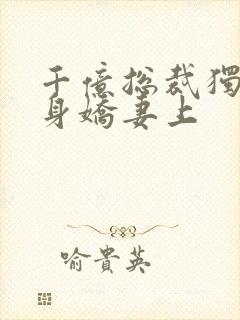 千億总裁獨
身嬌妻上
喻貴英